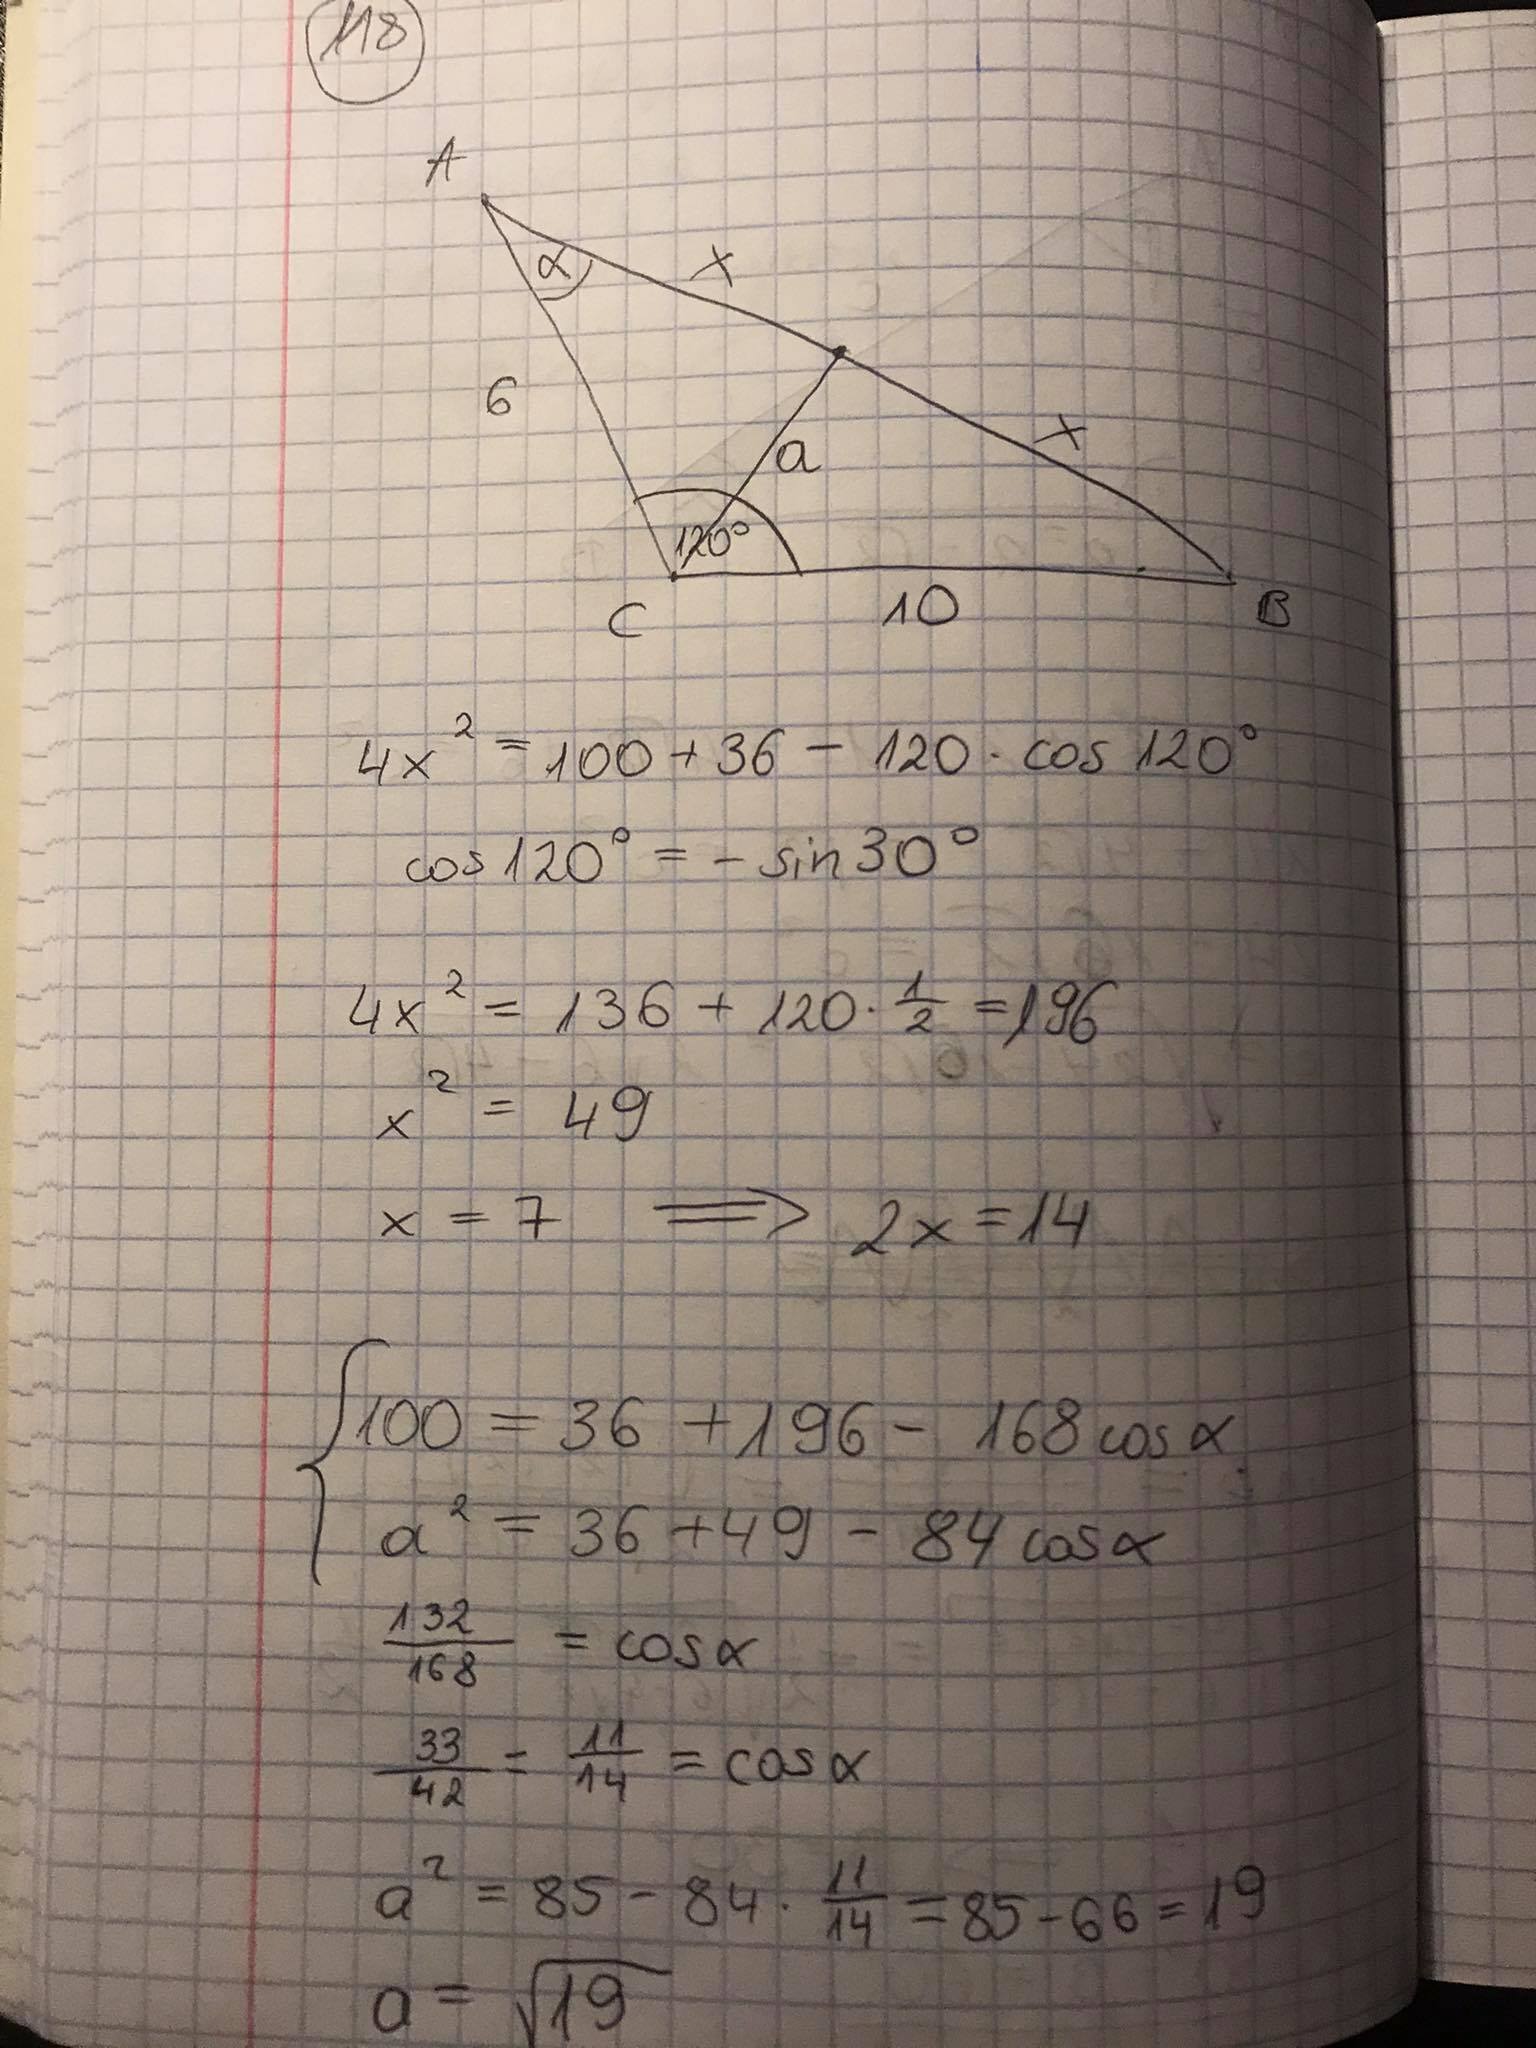 118
A
α
x
6
a
x
120°
C
10
B
4x² = 100 + 36 - 120 · cos 120°
cos 120° = - sin 30°
4x² = 136 + 120 · 1/2 = 196
x² = 49
x = 7 ⟹ 2x = 14
{ 100 = 36 + 196 - 168 cos α
a² = 36 + 49 - 84 cos α
132/168 = cos α
33/42 = 11/14 = cos α
a² = 85 - 84 · 11/14 = 85 - 66 = 19
a = √19